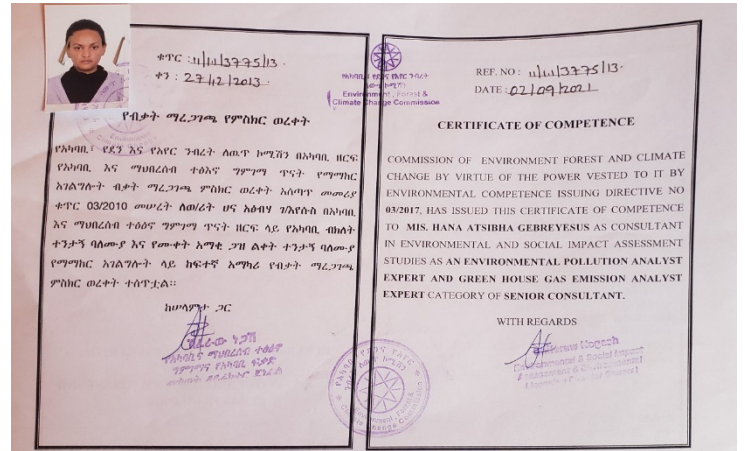 ቁጥር : 11/1.1/3775/13.
ቀን : 27/12/2013
የብቃት ማረጋገጫ የምስክር ወረቀት
የአካባቢ፣ የደን እና የአየር ንብረት ለውጥ ኮሚሽን በአካባቢ ዘርፍ
የአካባቢ እና ማህበረሰብ ተፅእኖ ግምገማ ጥናት የማማከር
አገልግሎት ብቃት ማረጋገጫ ምስክር ወረቀት አሰጣጥ መመሪያ
ቁጥር 03/2010 መሠረት ለወ/ሪት ሀና አፅብሃ ገ/እየሱስ በአካባቢ
እና ማህበረሰብ ተፅዕኖ ግምገማ ጥናት ዘርፍ ላይ የአካባቢ ብክለት
ተንታኝ ባለሙያ እና የሙቀት አማቂ ጋዝ ልቀት ተንታኝ ባለሙያ
የማማከር አገልግሎት ላይ ከፍተኛ አማካሪ የብቃት ማረጋገጫ
ምስክር ወረቀት ተሰጥቷል፡፡
ከሠላምታ ጋር
Environment, Forest &
Climate Change Commission
REF. NO : 3775/13.
DATE : 02/09/2021
CERTIFICATE OF COMPETENCE
COMMISSION OF ENVIRONMENT FOREST AND CLIMATE
CHANGE BY VIRTUE OF THE POWER VESTED TO IT BY
ENVIRONMENTAL COMPETENCE ISSUING DIRECTIVE NO
03/2017, HAS ISSUED THIS CERTIFICATE OF COMPETENCE
TO MIS. HANA ATSIBHA GEBREYESUS AS CONSULTANT
IN ENVIRONMENTAL AND SOCIAL IMPACT ASSESSMENT
STUDIES AS AN ENVIRONMENTAL POLLUTION ANALYST
EXPERT AND GREEN HOUSE GAS EMISSION ANALYST
EXPERT CATEGORY OF SENIOR CONSULTANT.
WITH REGARDS
Environmental & Social Impact